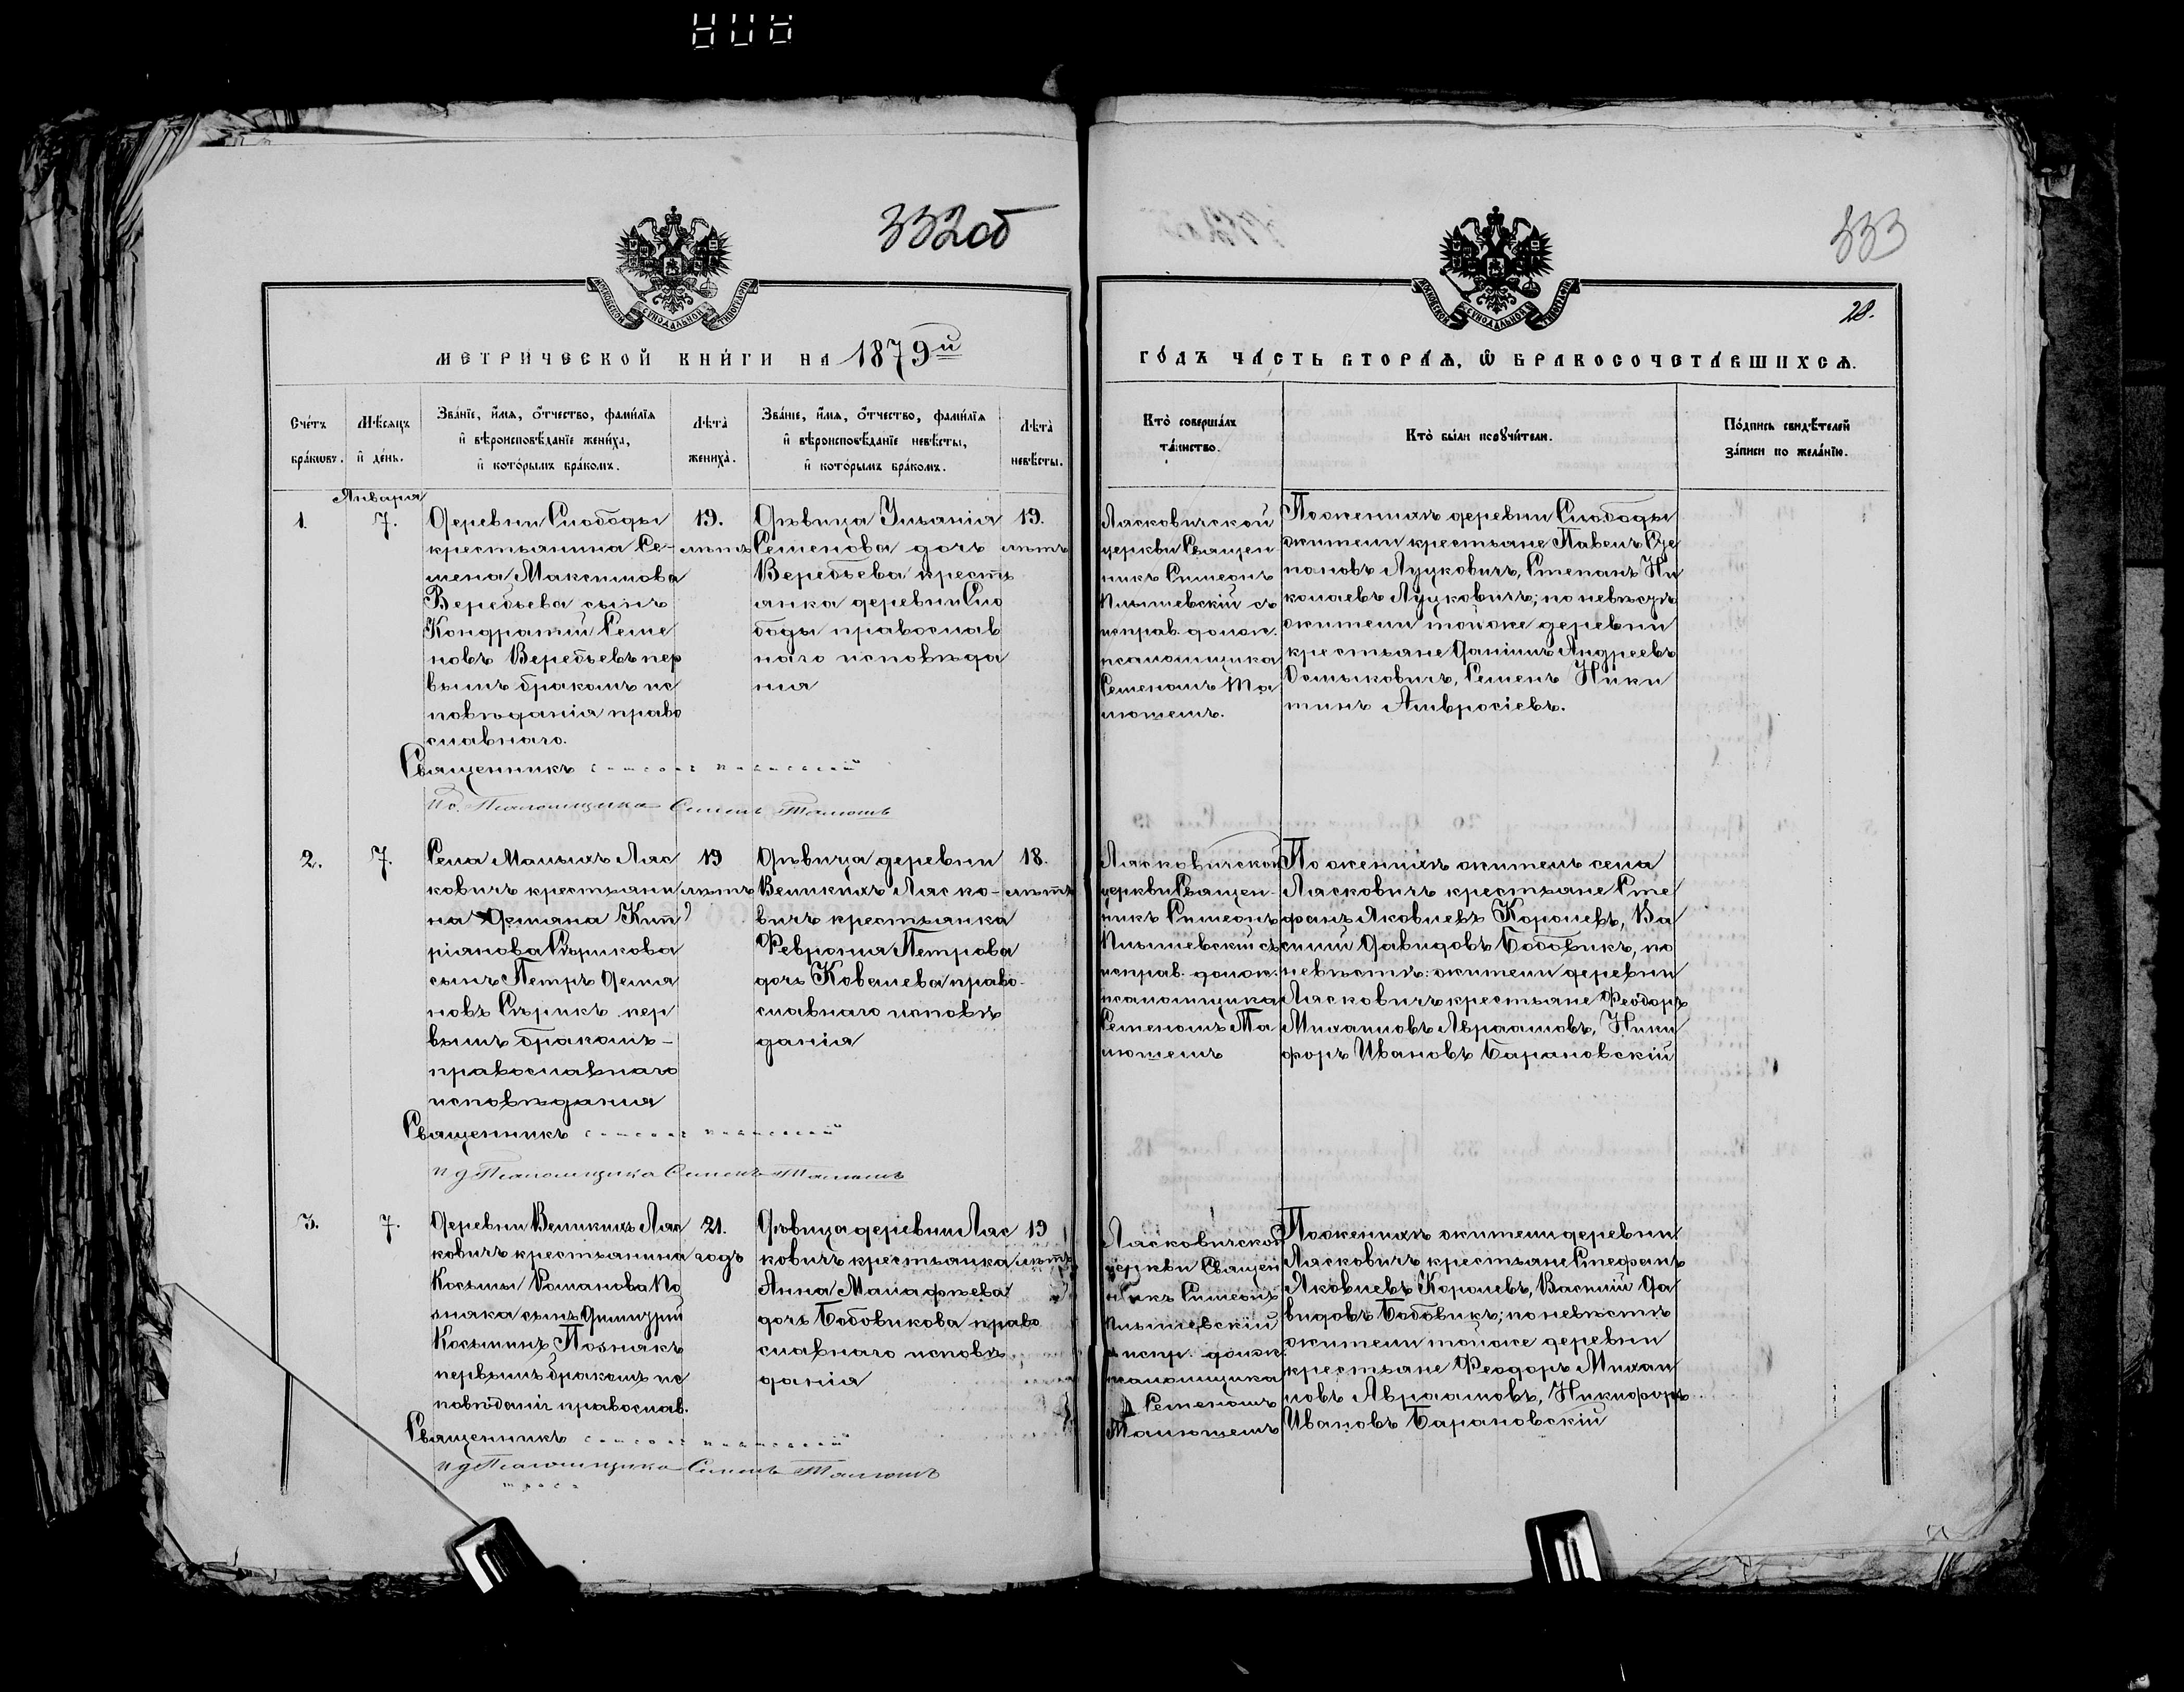 332об
333
28.
МЕТРИЧЕСКОЙ КНИ́ГИ НА 1879й
ГО́ДЪ ЧА́СТЬ ВТОРА́Ѧ, Ѿ БРАКОСОЧЕТА́ВШИХСѦ.
Сче́тъ бра́кѡвъ.
Мѣ́сѧцъ и де́нь.
Зва́нїе, и́мѧ, о́тчество, фамилїѧ
и вѣроисповѣ́данїе жениха̀,
и кото́рымъ бра́комъ.
Лѣта̀ жениха̀.
Зва́нїе, и́мѧ, о́тчество, фамилїѧ
и вѣроисповѣ́данїе невѣ́сты,
и кото́рымъ бра́комъ.
Лѣта̀ невѣ́сты.
Кто̀ соверша́лъ
та́инство.
Кто̀ бы́ли поручи́тели.
По́дпись свидѣ́телей
за́писи по жела́нїю.
Января
1.
7.
Деревни Слободы
крестьянина Се-
мена Максимова
Веребьева сынъ
Кондратій Семе
новъ Веребьевъ пер
вымъ бракомъ ис
повѣданія право
славнаго.
19.
лѣтъ
Дѣвица Уліанія
Семенова дочь
Веребьева кресть
янка деревни Сло
боды православ
наго исповѣда
нія
19.
лѣтъ
Ласковичской
церкви Священ
никъ Симеонъ
съ
исправ. долж.
псаломщика
Семеномъ
По женихѣ деревни Слободы
жители крестьяне Павелъ
Луцковичъ, Степанъ Ни
колаевъ Луцковичъ; по невѣстѣ
жители тойже деревни
крестьяне Даніилъ Андреевъ
Семенъ Ники
тинъ Амвросіевъ.
Священникъ
И д. Псаломщика Семенъ
2.
7.
Села Малыхъ Лас
ковичъ крестьяни
на Демяна Кип
ріянова Сѣрикова
сынъ Петръ Демя
новъ Сѣрикъ пер
вымъ бракомъ -
православнаго
исповѣданія
19
лѣтъ
Дѣвица деревни
Великихъ Ласко-
вичъ крестьянка
Февронія Петрова
дочь Ковалева право-
славнаго исповѣ
данія
18.
лѣтъ
Ласковичской
церкви Священ-
никъ Симеонъ
съ
исправ. долж.
псаломщика
Семеномъ
По женихѣ житель села
Ласковичъ крестьяне Сте
фанъ Яковлевъ Королевъ, Ва
силій Давидовъ Бобовикъ, по
невѣстѣ: жители деревни
Ласковичъ крестьяне Феодоръ
Михаиловъ Авраамовъ, Ники
форъ Ивановъ Барановскій
Священникъ
И д Псаломщика Семенъ
3.
7.
Деревни Великихъ Лас
ковичъ крестьянина
Косьмы Романова По
знака сынъ Димитрій
Косьминъ Познакъ
первымъ бракомъ ис
повѣданія православ.
21.
годъ
Дѣвица деревни Лас
ковичъ крестьянка
Анна Малафѣева
дочь Бобовикова право
славнаго исповѣ
данія
19
лѣтъ
Ласковичской
церкви Священ
никъ Симеонъ
испр. долж.
псаломщика
Семеномъ
По женихѣ жители деревни
Ласковичъ крестьяне Стефанъ
Яковлевъ Королевъ, Василій Да
видовъ Бобовикъ; по невѣстѣ
жители тойже деревни
крестьяне Феодоръ Михаи
ловъ Авраамовъ, Никифоръ
Ивановъ Барановскій
Священникъ
И д Псаломщика Семенъ